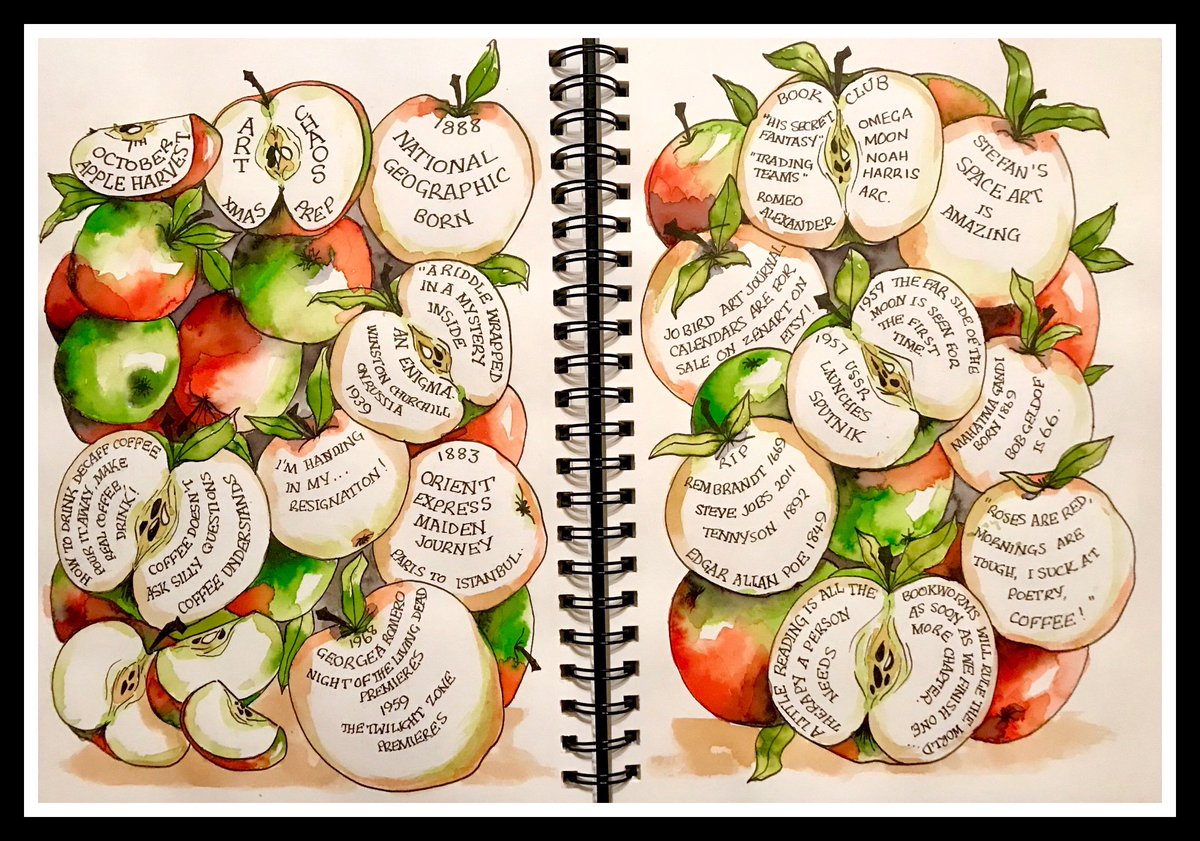 7TH
OCTOBER
APPLE HARVEST
ART
CHAOS
XMAS
PREP
1888
NATIONAL
GEOGRAPHIC
BORN
"A RIDDLE WRAPPED
IN A MYSTERY
INSIDE
AN ENIGMA.
WINSTON CHURCHILL
ON RUSSIA
1939
HOW TO DRINK DECAFF COFFEE
POUR IT AWAY. MAKE
REAL COFFEE,
DRINK!
COFFEE DOESN'T
ASK SILLY QUESTIONS
COFFEE UNDERSTANDS
I'M HANDING
IN MY...
RESIGNATION!
1883
ORIENT
EXPRESS
MAIDEN
JOURNEY
PARIS TO ISTANBUL.
1968
GEORGE A ROMERO
NIGHT OF THE LIVING DEAD
PREMIERES
1959
THE TWILIGHT ZONE
PREMIERES
BOOK CLUB
"HIS SECRET
FANTASY"
"TRADING
TEAMS"
ROMEO
ALEXANDER
OMEGA
MOON
NOAH
HARRIS
ARC.
STEFAN'S
SPACE ART
IS
AMAZING
JO BIRD ART JOURNAL
CALENDARS ARE FOR
SALE ON ZANART ON
ETSY!
1959 THE FAR SIDE OF THE
MOON IS SEEN FOR
THE FIRST
TIME
1957 USSR
LAUNCHES
SPUTNIK
MAHATMA GANDI
BORN 1869
BOB GELDOF
IS 66.
RIP
REMBRANDT 1669
STEVE JOBS 2011
TENNYSON 1892
EDGAR ALLAN POE 1849
"ROSES ARE RED,
MORNINGS ARE
TOUGH, I SUCK AT
POETRY,
COFFEE!"
A LITTLE READING IS ALL THE
THERAPY A PERSON
NEEDS
BOOKWORMS WILL RULE THE WORLD
AS SOON AS WE FINISH ONE
MORE CHAPTER...